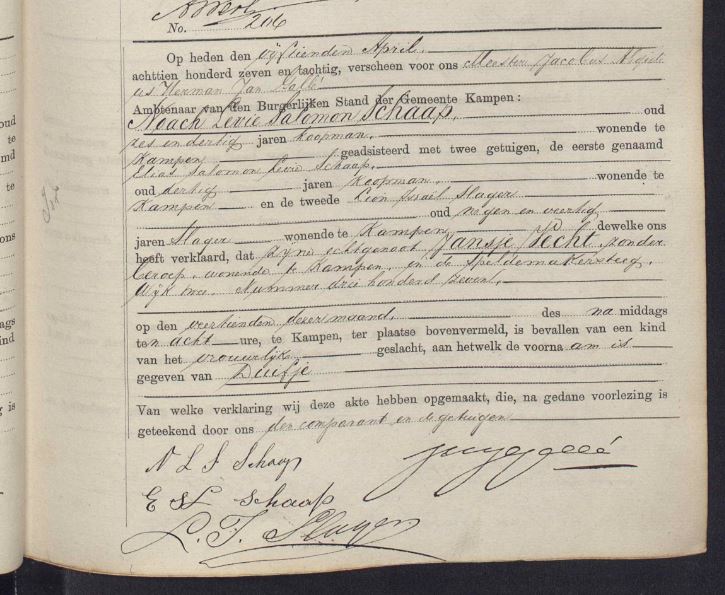 No. 206
Op heden den vijftienden April.
achttien honderd zeven en tachtig, verscheen voor ons Meester Jacobus
Herman Jan
Ambtenaar van den Burgerlijken Stand der Gemeente Kampen:
Noach Levie Salomon Schaap, oud
zes en dertig jaren koopman, wonende te
Kampen geadsisteerd met twee getuigen, de eerste genaamd
Elias Salomon Levie Schaap,
oud dertig jaren koopman, wonende te
Kampen en de tweede Lion Israel Slager
oud negen en veertig
jaren Slager wonende te Kampen, dewelke ons
heeft verklaard, dat zijne echtgenoot Jansje Pecht, zonder
beroep, wonende te Kampen, in de Speldemakersteeg,
Wijk twee Nummer drie honderd zeven,
op den veertienden dezer maand, des na middags
ten acht ure, te Kampen, ter plaatse bovenvermeld, is bevallen van een kind
van het vrouwelijk geslacht, aan hetwelk de voorna am is
gegeven van Duifje
Van welke verklaring wij deze akte hebben opgemaakt, die, na gedane voorlezing is
geteekend door ons den comparant en de getuigen
N L S Schaap
E S L Schaap
L. I. Slager